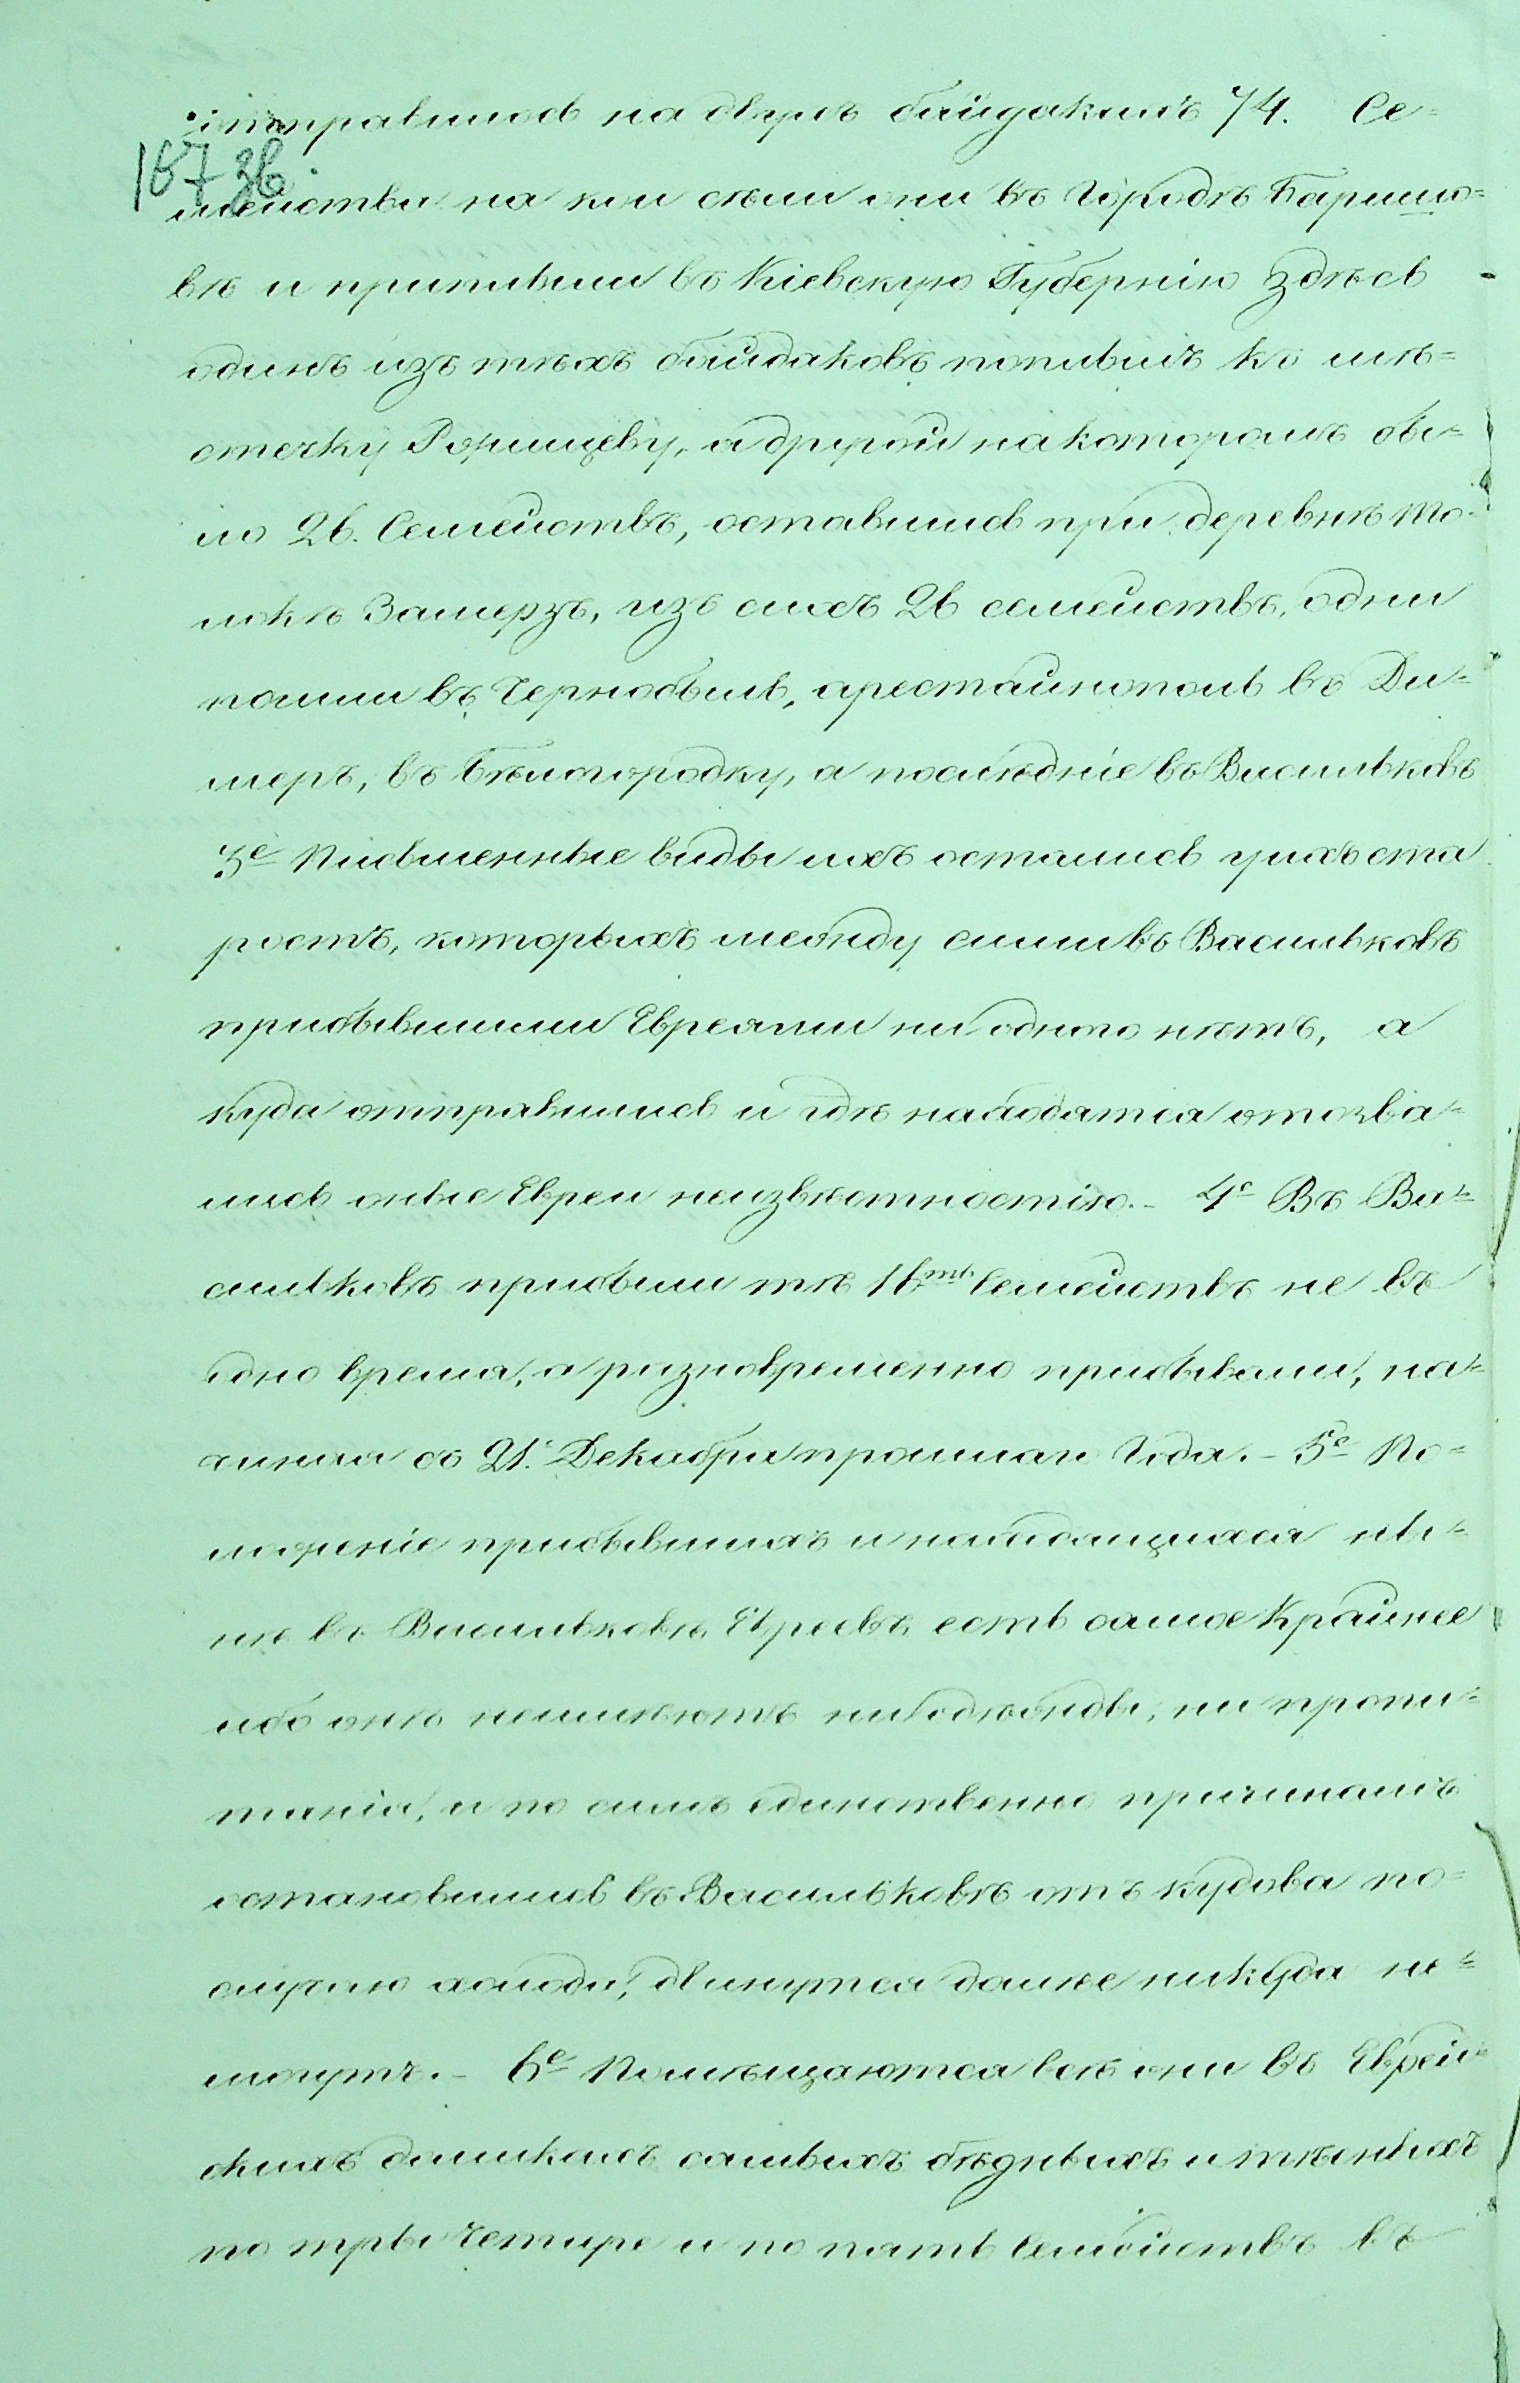 отправилось на двухъ байдакахъ 74. Се=
187 зв.
мейства на кои сѣли они въ Городѣ Баришо=
вѣ и приплывши въ Кіевскую Губернію здѣсь
одинъ изъ тѣхъ байдаковъ поплылъ къ мѣ=
стечку Ржищеву, а другой на которомъ бы=
ло 26. Семействъ, оставшись при деревнѣ То=
локѣ Замерзъ, изъ сихъ 26 семействъ, одни
пошли въ Чернобыль, другіе въ Ди=
меръ, въ Бѣлогородку, а послѣдніе въ Васильковъ
3е Письменные виды ихъ остались у ихъ ста
ростъ, которыхъ между сими въ Васильковъ
прибывшими Евреями ни одного нѣтъ, а
куда отправились и гдѣ находятся отозва=
лись оные Евреи неизвѣстностію.- 4е Въ Ва=
сильковъ прибыли тѣ 16ть Семействъ не въ
одно время, а разновременно прибывали, на=
чиная съ 21. Декабря прошлаго Года.- 5е По=
ложеніе прибывшихъ и находящихся ны=
не въ Васильковѣ Евреевъ есть самое Крайнее
ибо они неимѣютъ ни одежды, ни пропи=
танія, и по симъ единственно причинамъ
остановились въ Васильковѣ отъ кудова по
случаю холода, двинутся далѣе никуда не=
могутъ.- 6е Помѣщаются всѣ они въ Еврей
скихъ домикахъ самыхъ бѣдныхъ и тѣсныхъ
по тры Четыре и по пять Семействъ въ